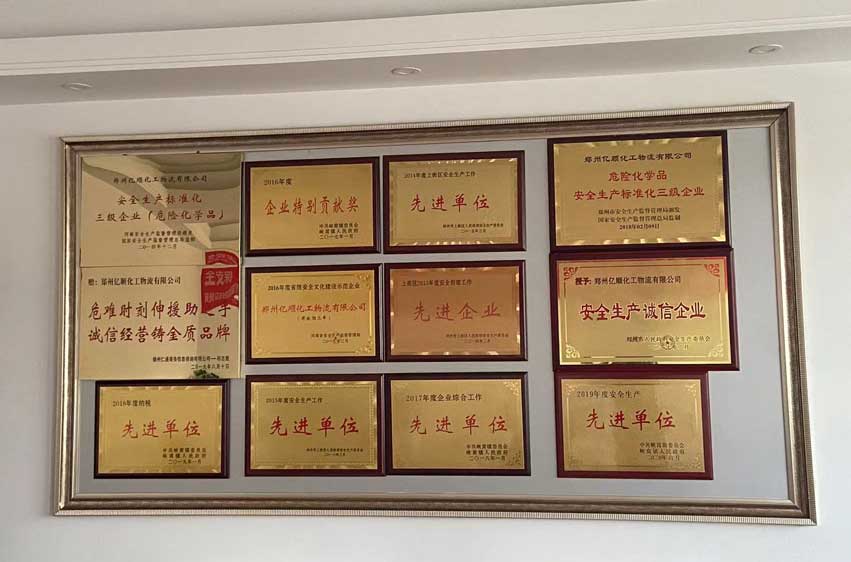 郑州亿顺化工物流有限公司
安全生产标准化
三级企业（危险化学品）
二〇一四年十二月
2016年度
企业特别贡献奖
中共峡窝镇委员会
峡窝镇人民政府
二〇一七年一月
2014年度上街区安全生产工作
先进单位
郑州亿顺化工物流有限公司
危险化学品
安全生产标准化三级企业
郑州市安全生产监督管理局颁发
国家安全生产监督管理总局监制
2018年02月09日
赠：郑州亿顺化工物流有限公司
危难时刻伸援助之手
诚信经营铸金质品牌
二〇一九年八月十日
2016年度省级安全文化建设示范企业
郑州亿顺化工物流有限公司
先进企业
授予：郑州亿顺化工物流有限公司
安全生产诚信企业
2018年度纳税
先进单位
中共峡窝镇委员会
峡窝镇人民政府
二〇一九年一月
2015年度安全生产工作
先进单位
2017年度企业综合工作
先进单位
中共峡窝镇委员会
峡窝镇人民政府
二〇一八年一月
2019年度安全生产
先进单位
中共峡窝镇委员会
峡窝镇人民政府